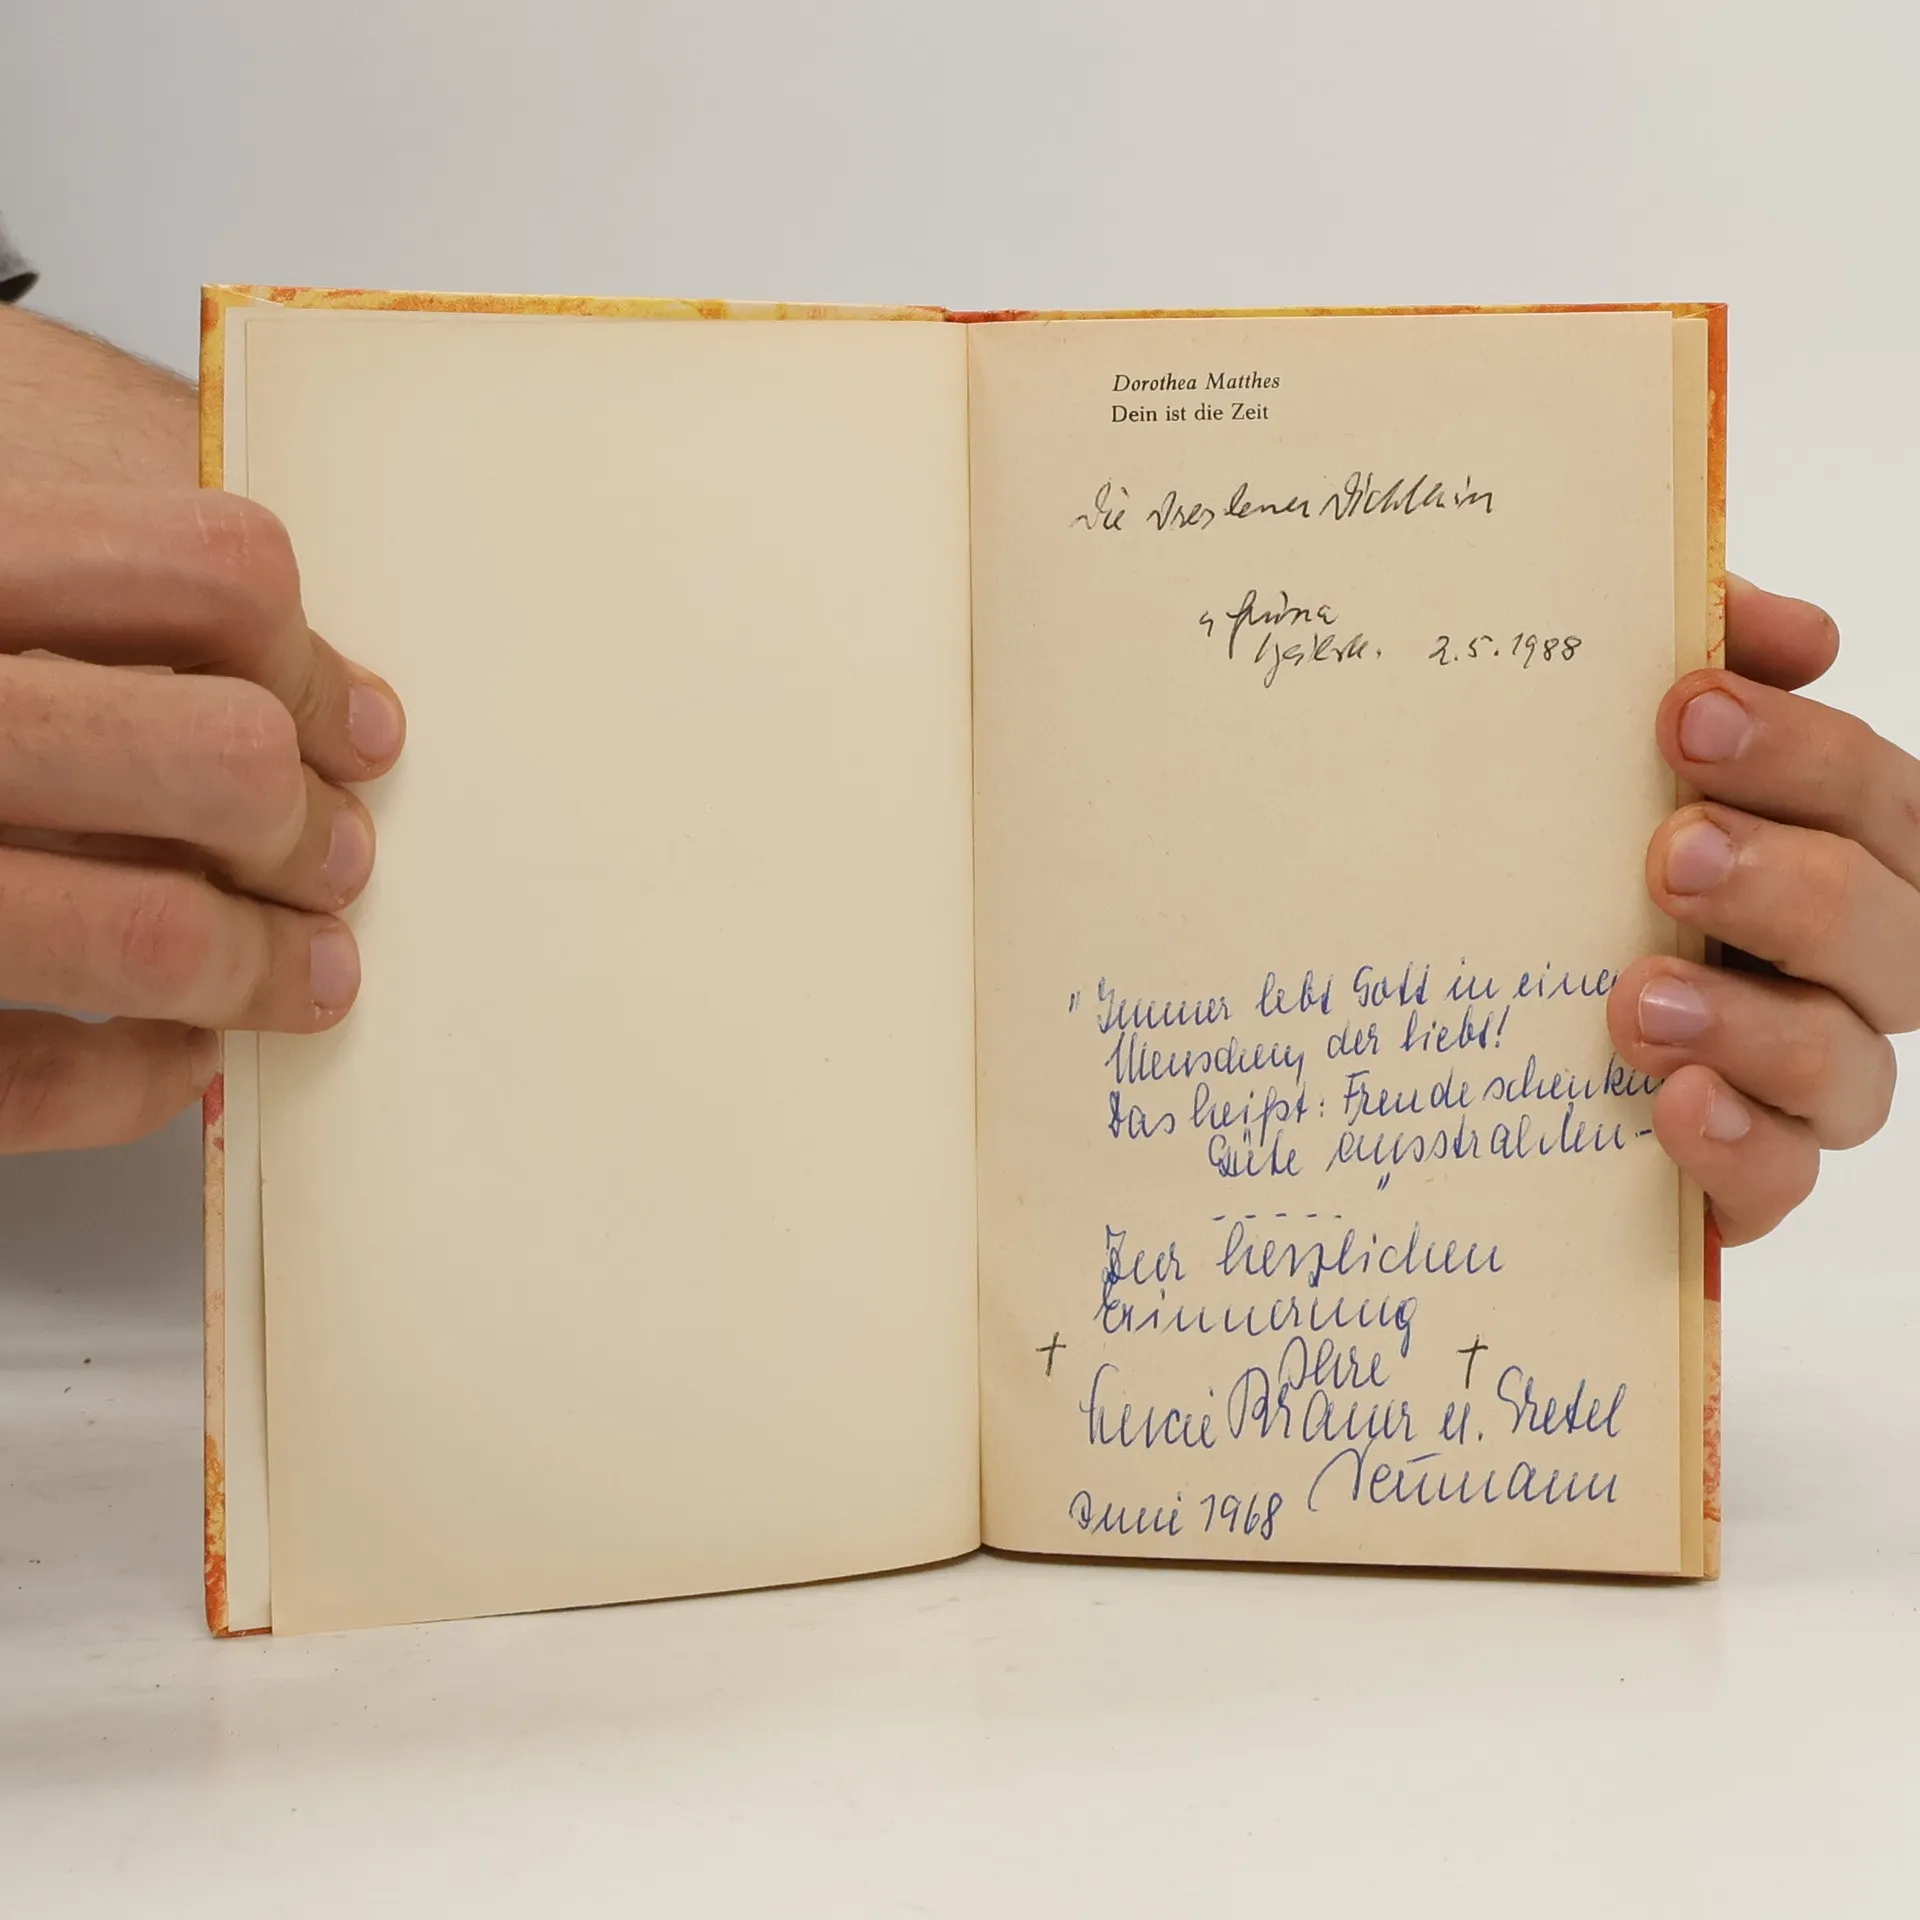 Dorothea Matthes
Dein ist die Zeit
Die Dresdener Dichterin
2.5.1988
"Immer lebt Gott in eine
Menschen, der liebt!
Das heißt: Freude schenken
Güte ausstrahlen -
"
- - - - -
Zur herzlichen
Erinnerung
Ihre
† †
Lucie Brauer u. Gretel
Neumann
Juni 1968